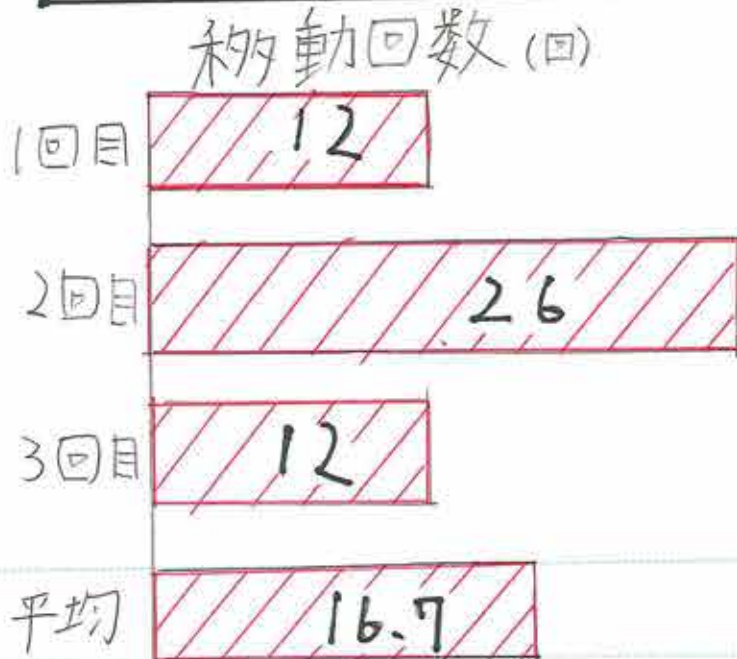 移動回数(回)
1回目 12
2回目 26
3回目 12
平均 16.7